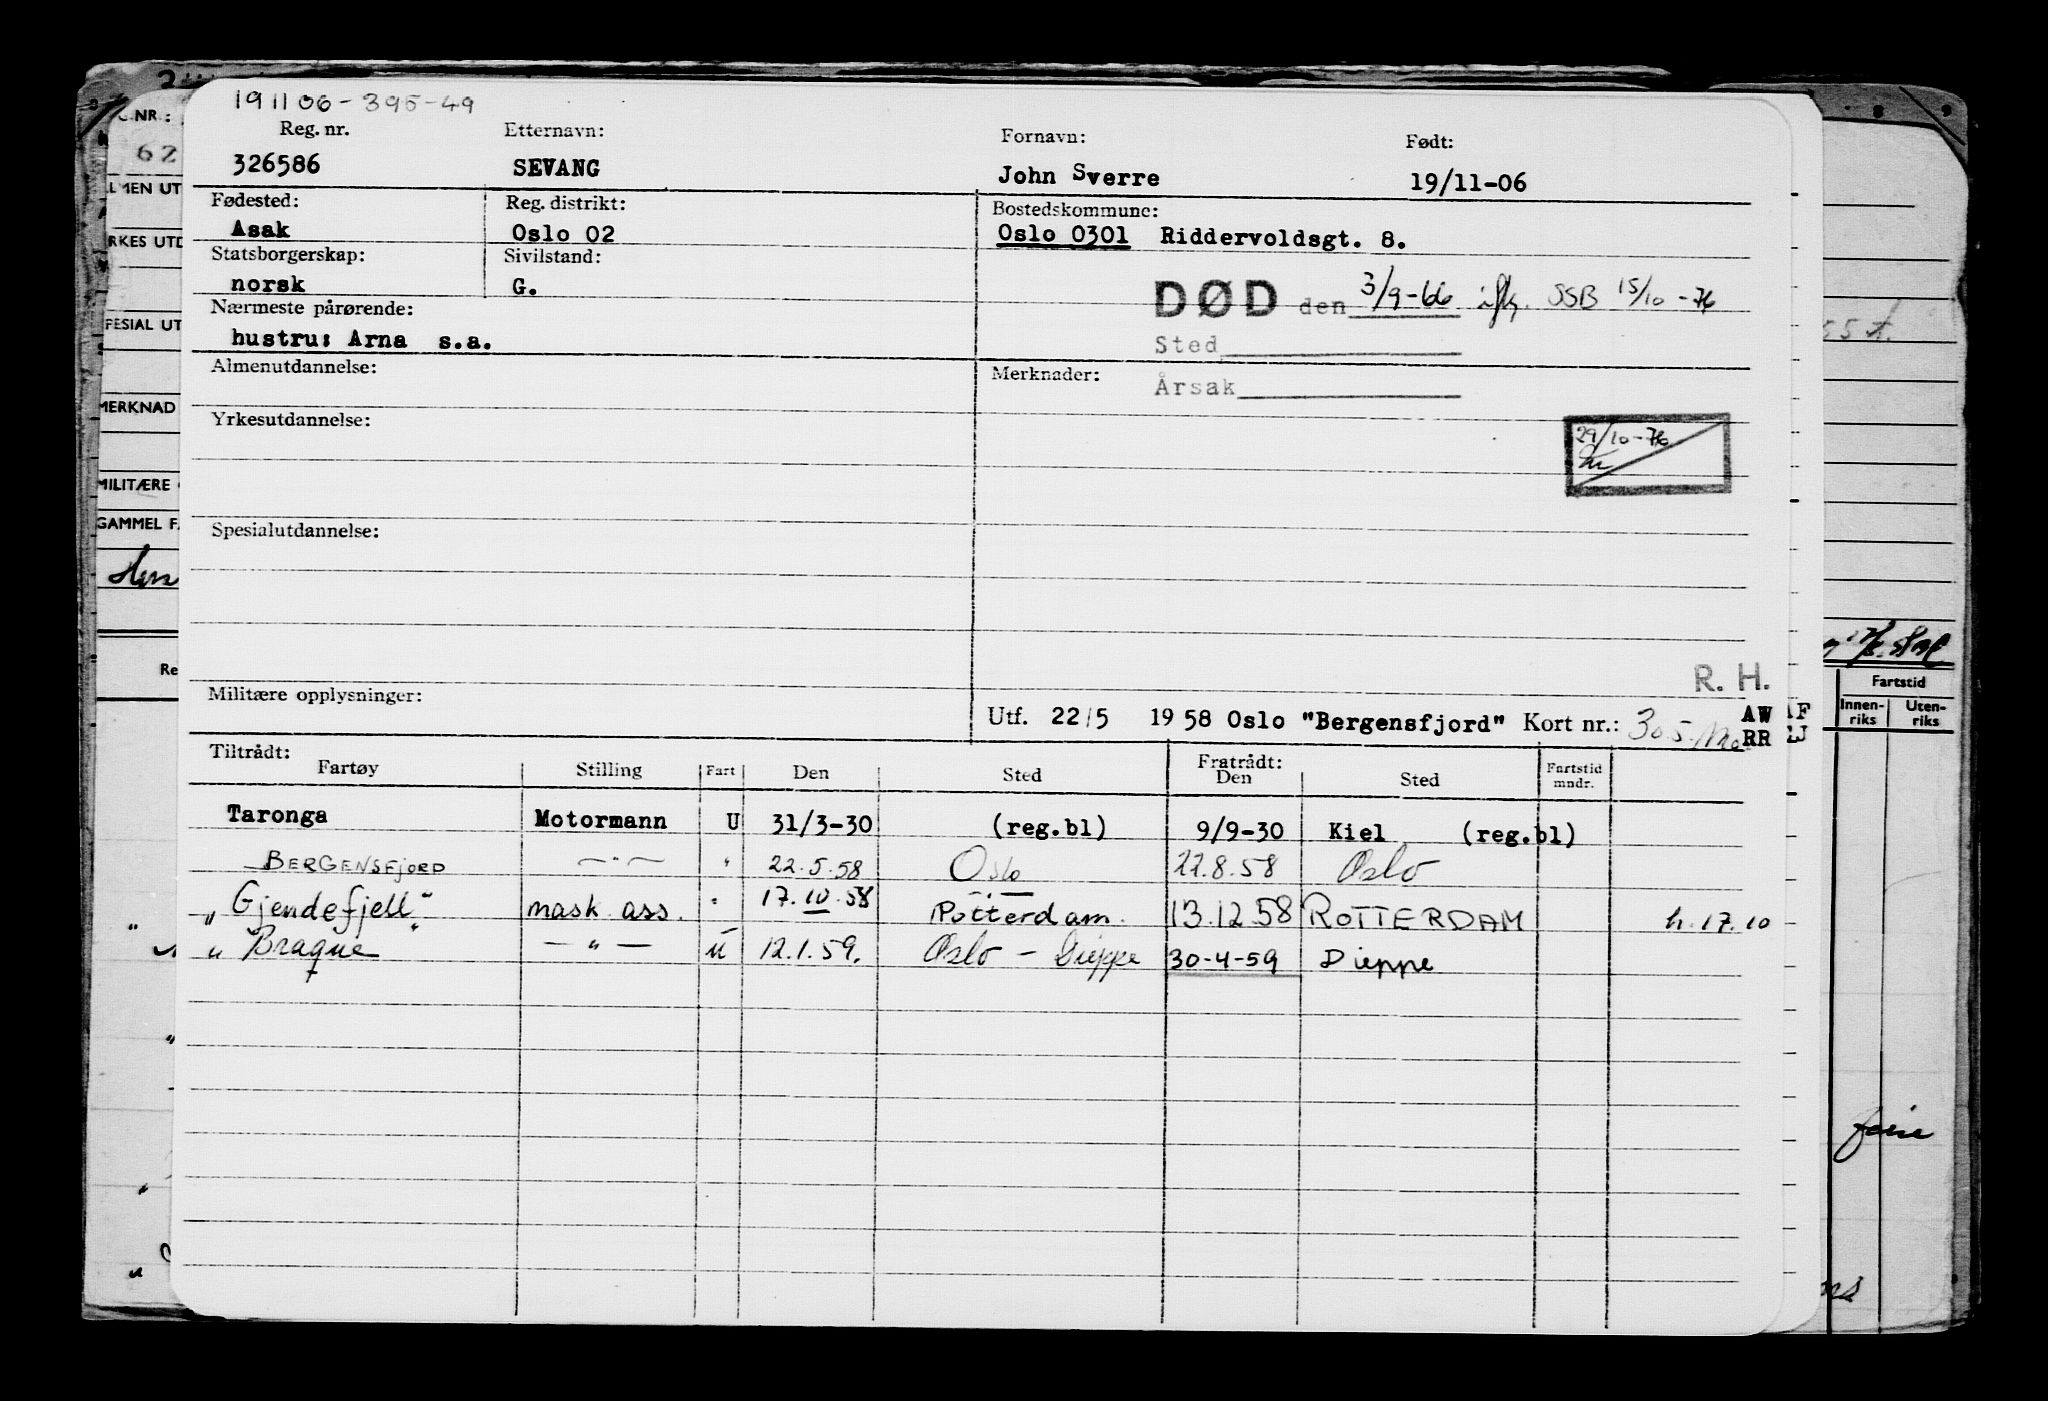 191106-395-49
Reg. nr. Etternavn: Fornavn: Født:
326586 SEVANG John Sverre 19/11-06
Fødested: Reg. distrikt: Bostedskommune:
Asak Oslo 02 Oslo 0301 Riddervoldsgt. 8.
Statsborgerskap: Sivilstand:
norsk G.
DØD den 3/9-66 iflg. SSB 15/10-76
Nærmeste pårørende:
hustru: Arna s.a.
Sted
Almenutdannelse: Merknader: Årsak
Yrkesutdannelse:
29/10-76
Spesialutdannelse:
R. H.
Militære opplysninger:
Utf. 22/5 1958 Oslo "Bergensfjord" Kort nr.: 305.
AW
RR
Tiltrådt: Fratrådt:
Fartøy Stilling Fart Den Sted Den Sted Fartstid mndr.
Taronga Motormann U 31/3-30 (reg.bl) 9/9-30 Kiel (reg.bl)
BERGENSFJORD —"— " 22.5.58 Oslo 22.8.58 Oslo
"Gjendefjell" mask. ass. " 17.10.58 Rotterdam. 13.12.58 ROTTERDAM h.17.10
"Braque" —"— U 12.1.59. Oslo - Dieppe 30-4-59 Dieppe
C.NR.:
62
LMEN UT
RKES UTD
PESIAL UT
MERKNAD
MILITÆRE
GAMMEL F
Re
55
Fartstid
Innen-riks Uten-riks
AF
LJ